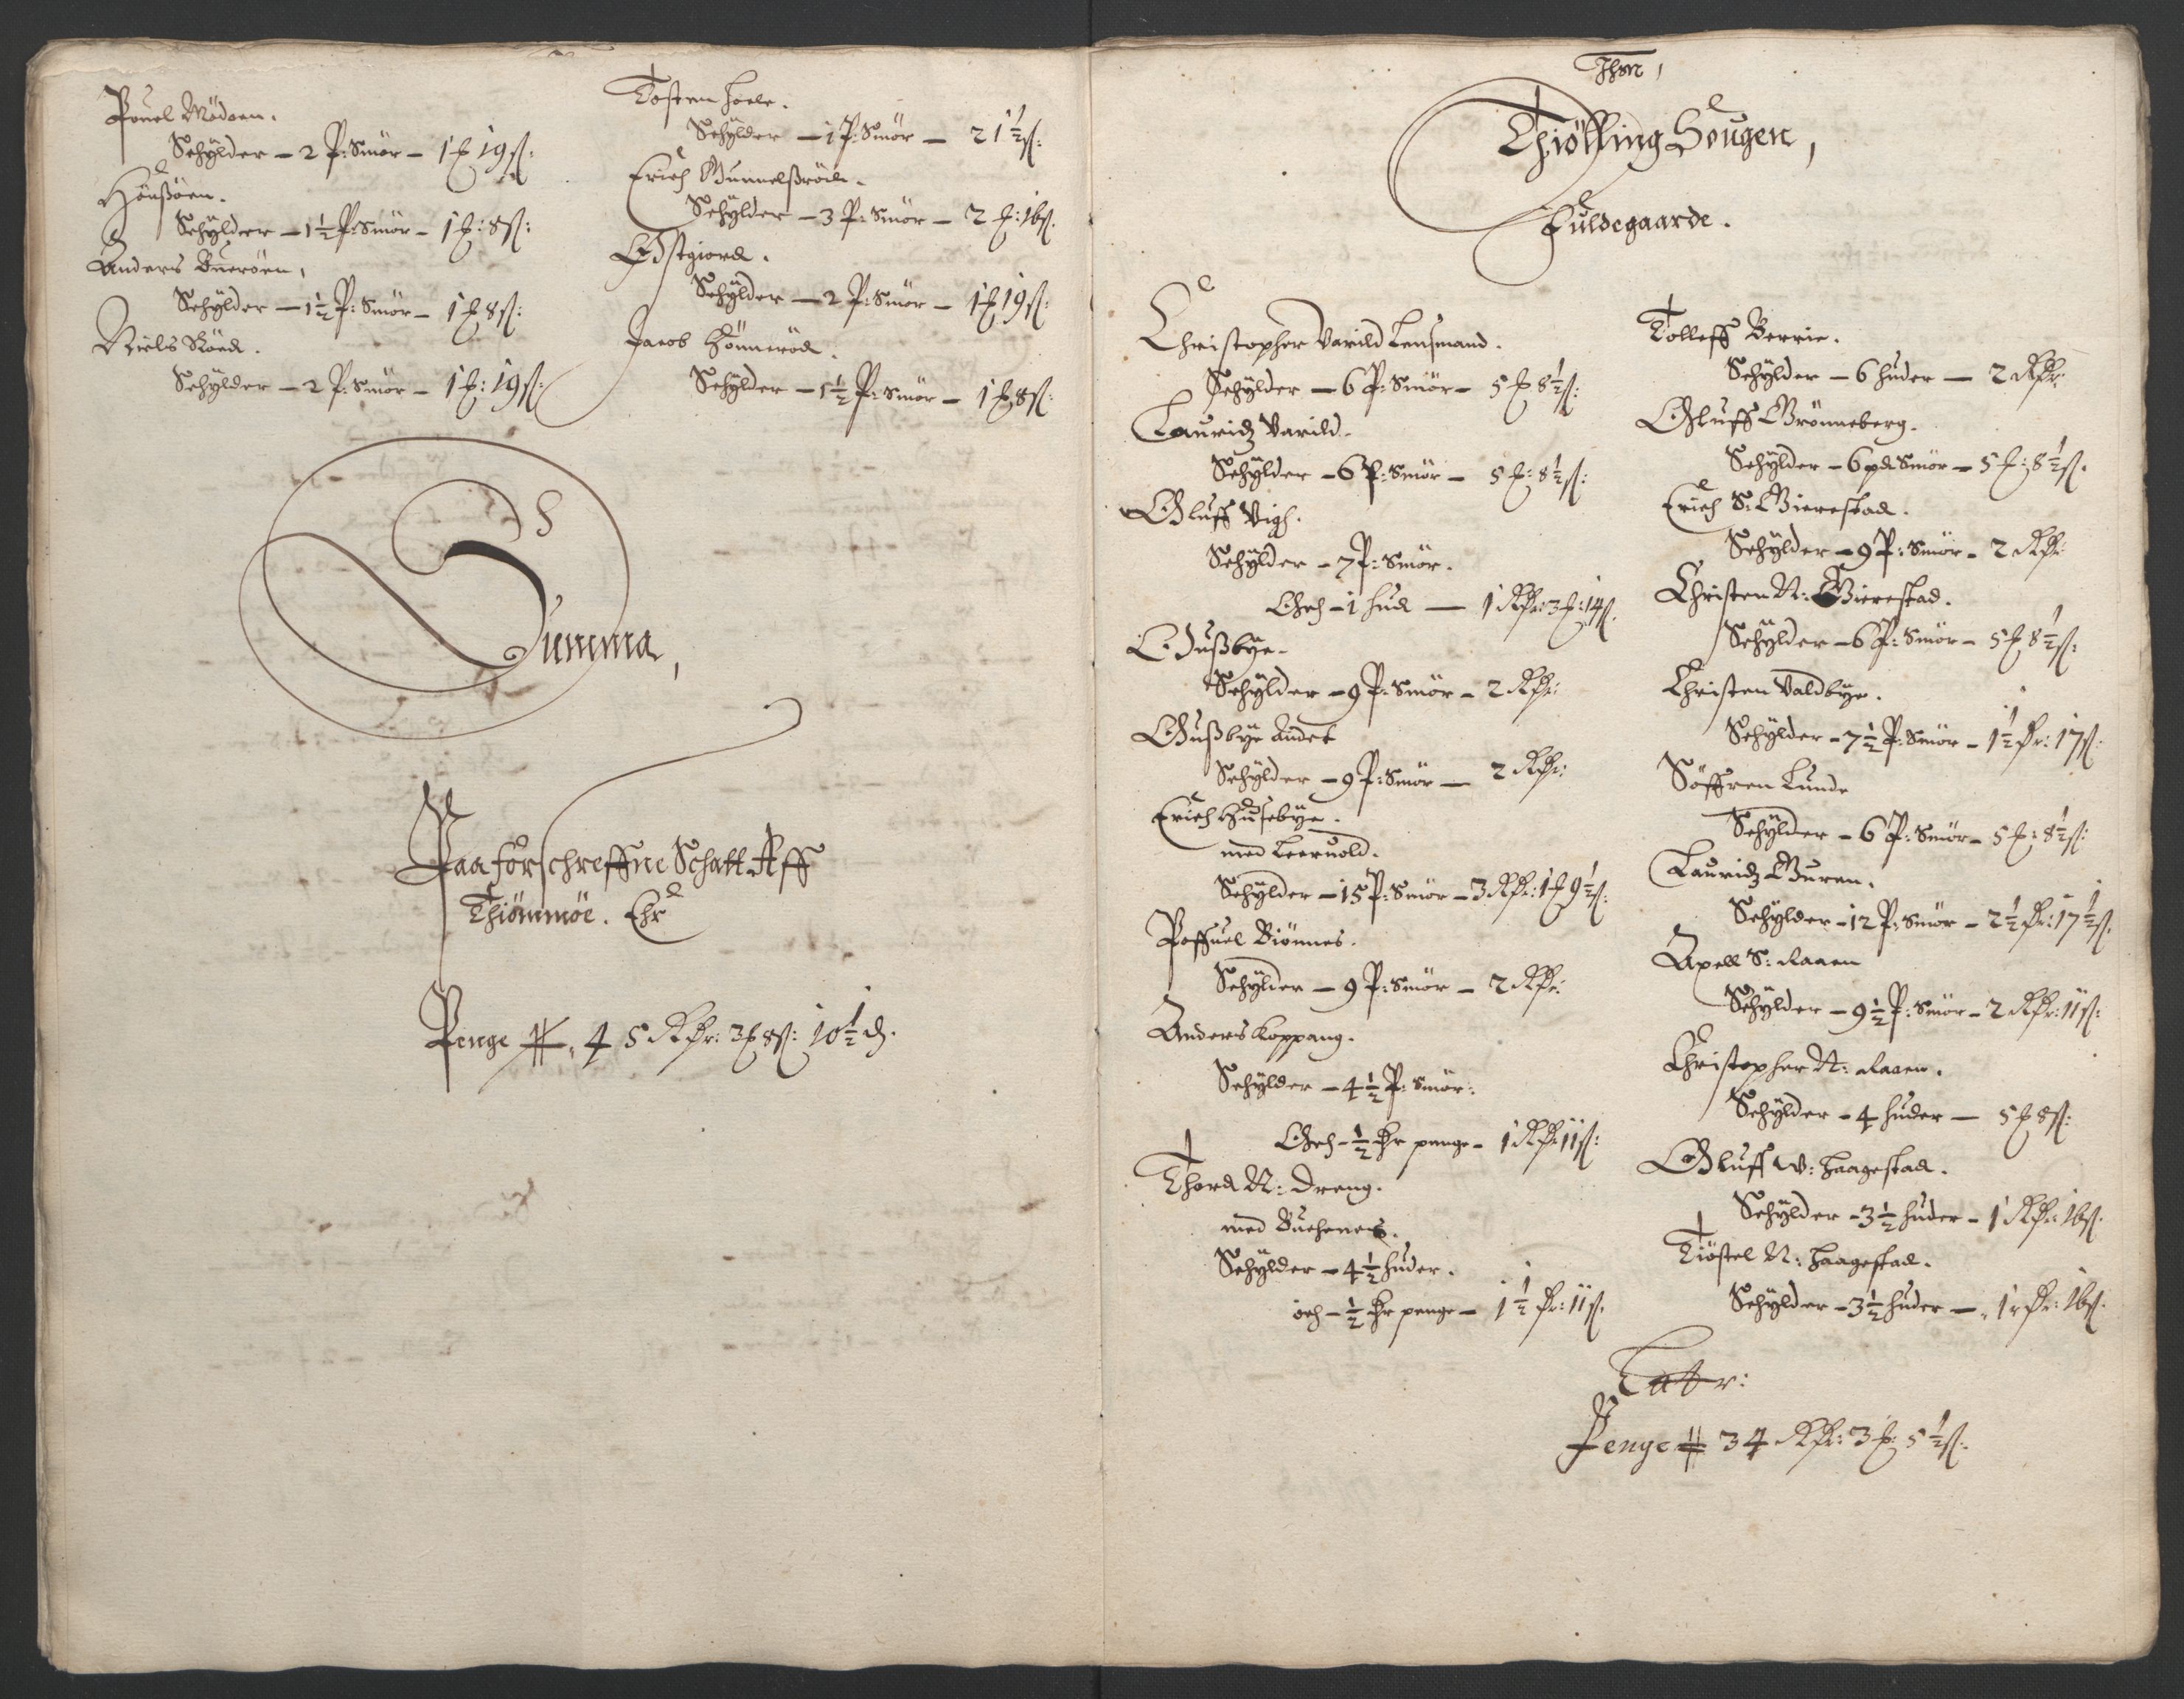 Pouel Mødøen.
Schÿlder – 2 P: Smør – 1 ℔ 19 ß:
Honßøen.
Schÿlder – 1½ P: Smør – 1 ℔: 8 ß:
Anders Buerøen,
Schÿlder – 1½ P: Smør – 1 ℔ 8 ß:
Niels Røed.
Schÿlder – 2 P: Smør – 1 ℔: 19 ß:
Tosten Hoele.
Schÿlder – 1 P: Smør – 21½ ß:
Erich Gunnelßrødt.
Schÿlder – 3 P: Smør – 2 ℔: 16 ß.
Østgiord.
Schÿlder – 2 P: Smør – 1 ℔ 19 ß:
Jacob Hønnerød.
Schÿlder – 1½ P: Smør – 1 ℔ 8 ß:
Summa,
Paa forschreffne Schatt Aff
Thiømmøe. Ehr
Penge # 45 Rdr: 3 ℔ 8 ß: 10½ d.
Ihm,
Thiølling Sougen,
Fuldegaarde.
Christopher Varild Lensmand.
Schÿlder – 6 P: Smør – 5 ℔ 8½ ß:
Lauridz Varild.
Schÿlder – 6 P: Smør – 5 ℔: 8½ ß:
Oluff Vigh.
Schÿlder – 7 P: Smør.
Och – 1 hud – 1 Rdr: 3 ℔: 14 ß.
Gußbye.
Schÿlder – 9 P: Smør – 2 Rdr:
Gußbye Andet
Schÿlder – 9 P: Smør – 2 Rdr:
Erich Husebye.
med Leeruold.
Schÿlder – 15 P: Smør – 3 Rdr: 1 ℔ 9½ ß:
Poffuel Biønnes.
Schÿlder – 9 P: Smør – 2 Rdr:
Anders Koppang.
Schÿlder – 4½ P: Smør:
Och – ½ Ehr penge – 1 Rdr 11 ß:
Thord N: Dreng.
med
Schÿlder – 4½ huder.
och – ½ Ehr penge – 1½ dr: 11 ß.
Tolleff Berrie.
Schÿlder – 6 huder – 2 Rdr:
Oluff Grønneberg.
Schÿlder – 6 pd Smør – 5 ℔: 8½ ß.
Erich S: Gierestad.
Schÿlder – 9 P: Smør – 2 Rdr:
Christen N: Gierestad.
Schÿlder – 6 P: Smør – 5 ℔ 8½ ß:
Christen Valdbye.
Schÿlder – 7½ P: Smør – 1½ dr: 17 ß:
Søffren Lunde
Schÿlder – 6 P: Smør – 5 ℔: 8½ ß:
Lauridz Guren.
Schÿlder – 12 P: Smør – 2½ dr: 17½ ß.
Axell S: Raaen
Schÿlder – 9½ P: Smør – 2 Rdr: 11 ß:
Christopher N: Raaen.
Schÿlder – 4 huder – 5 ℔ 8 ß:
Oluff W: Haagestad.
Schÿlder – 3½ huder – 1 Rdr: 16 ß.
Tiøstel N: Haagestad.
Schÿlder – 3½ huder – 1 rdr: 16 ß.
Latr:
Penge # 34 Rdr: 3 ℔: 5½ ß: